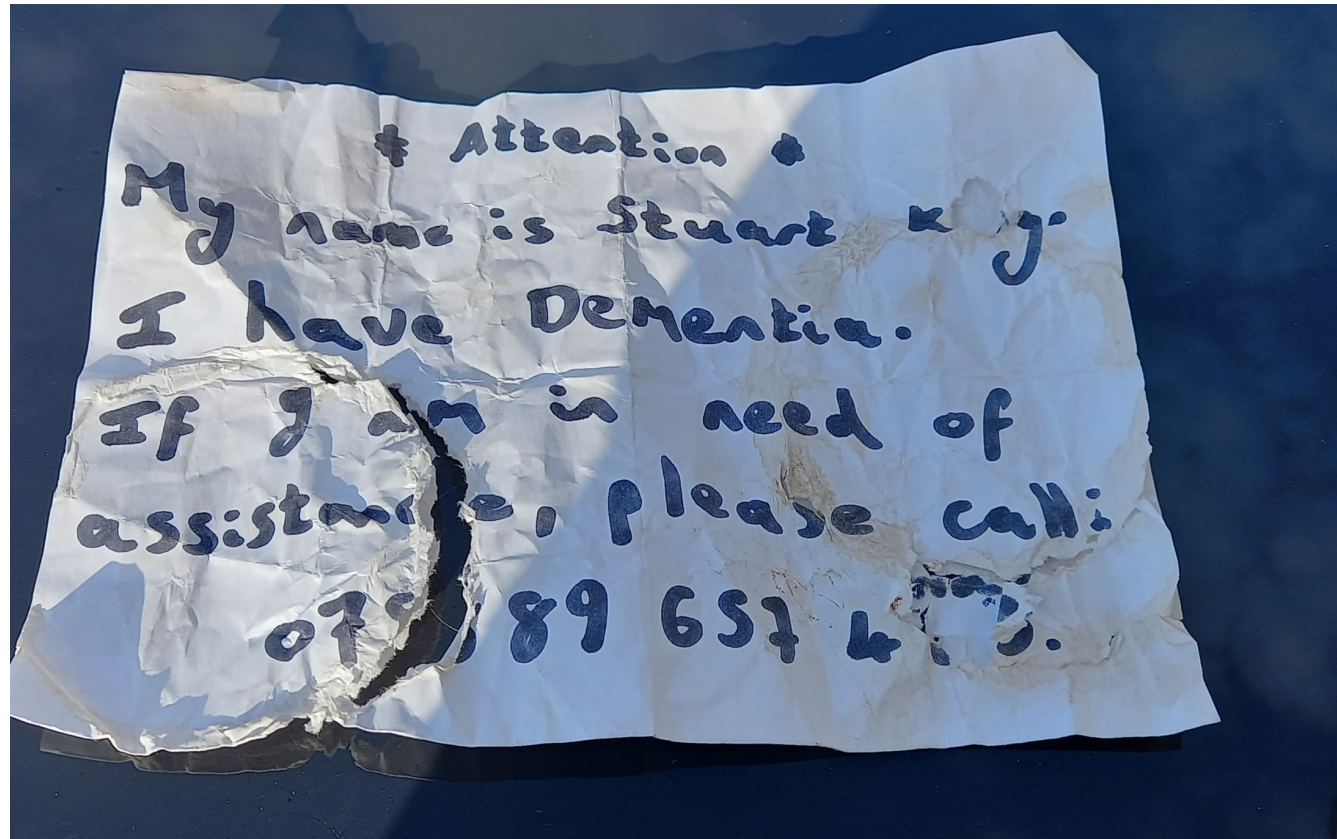 * Attention *
My name is Stuart
I have Dementia.
If I am in need of
assistance, please call:
89 657